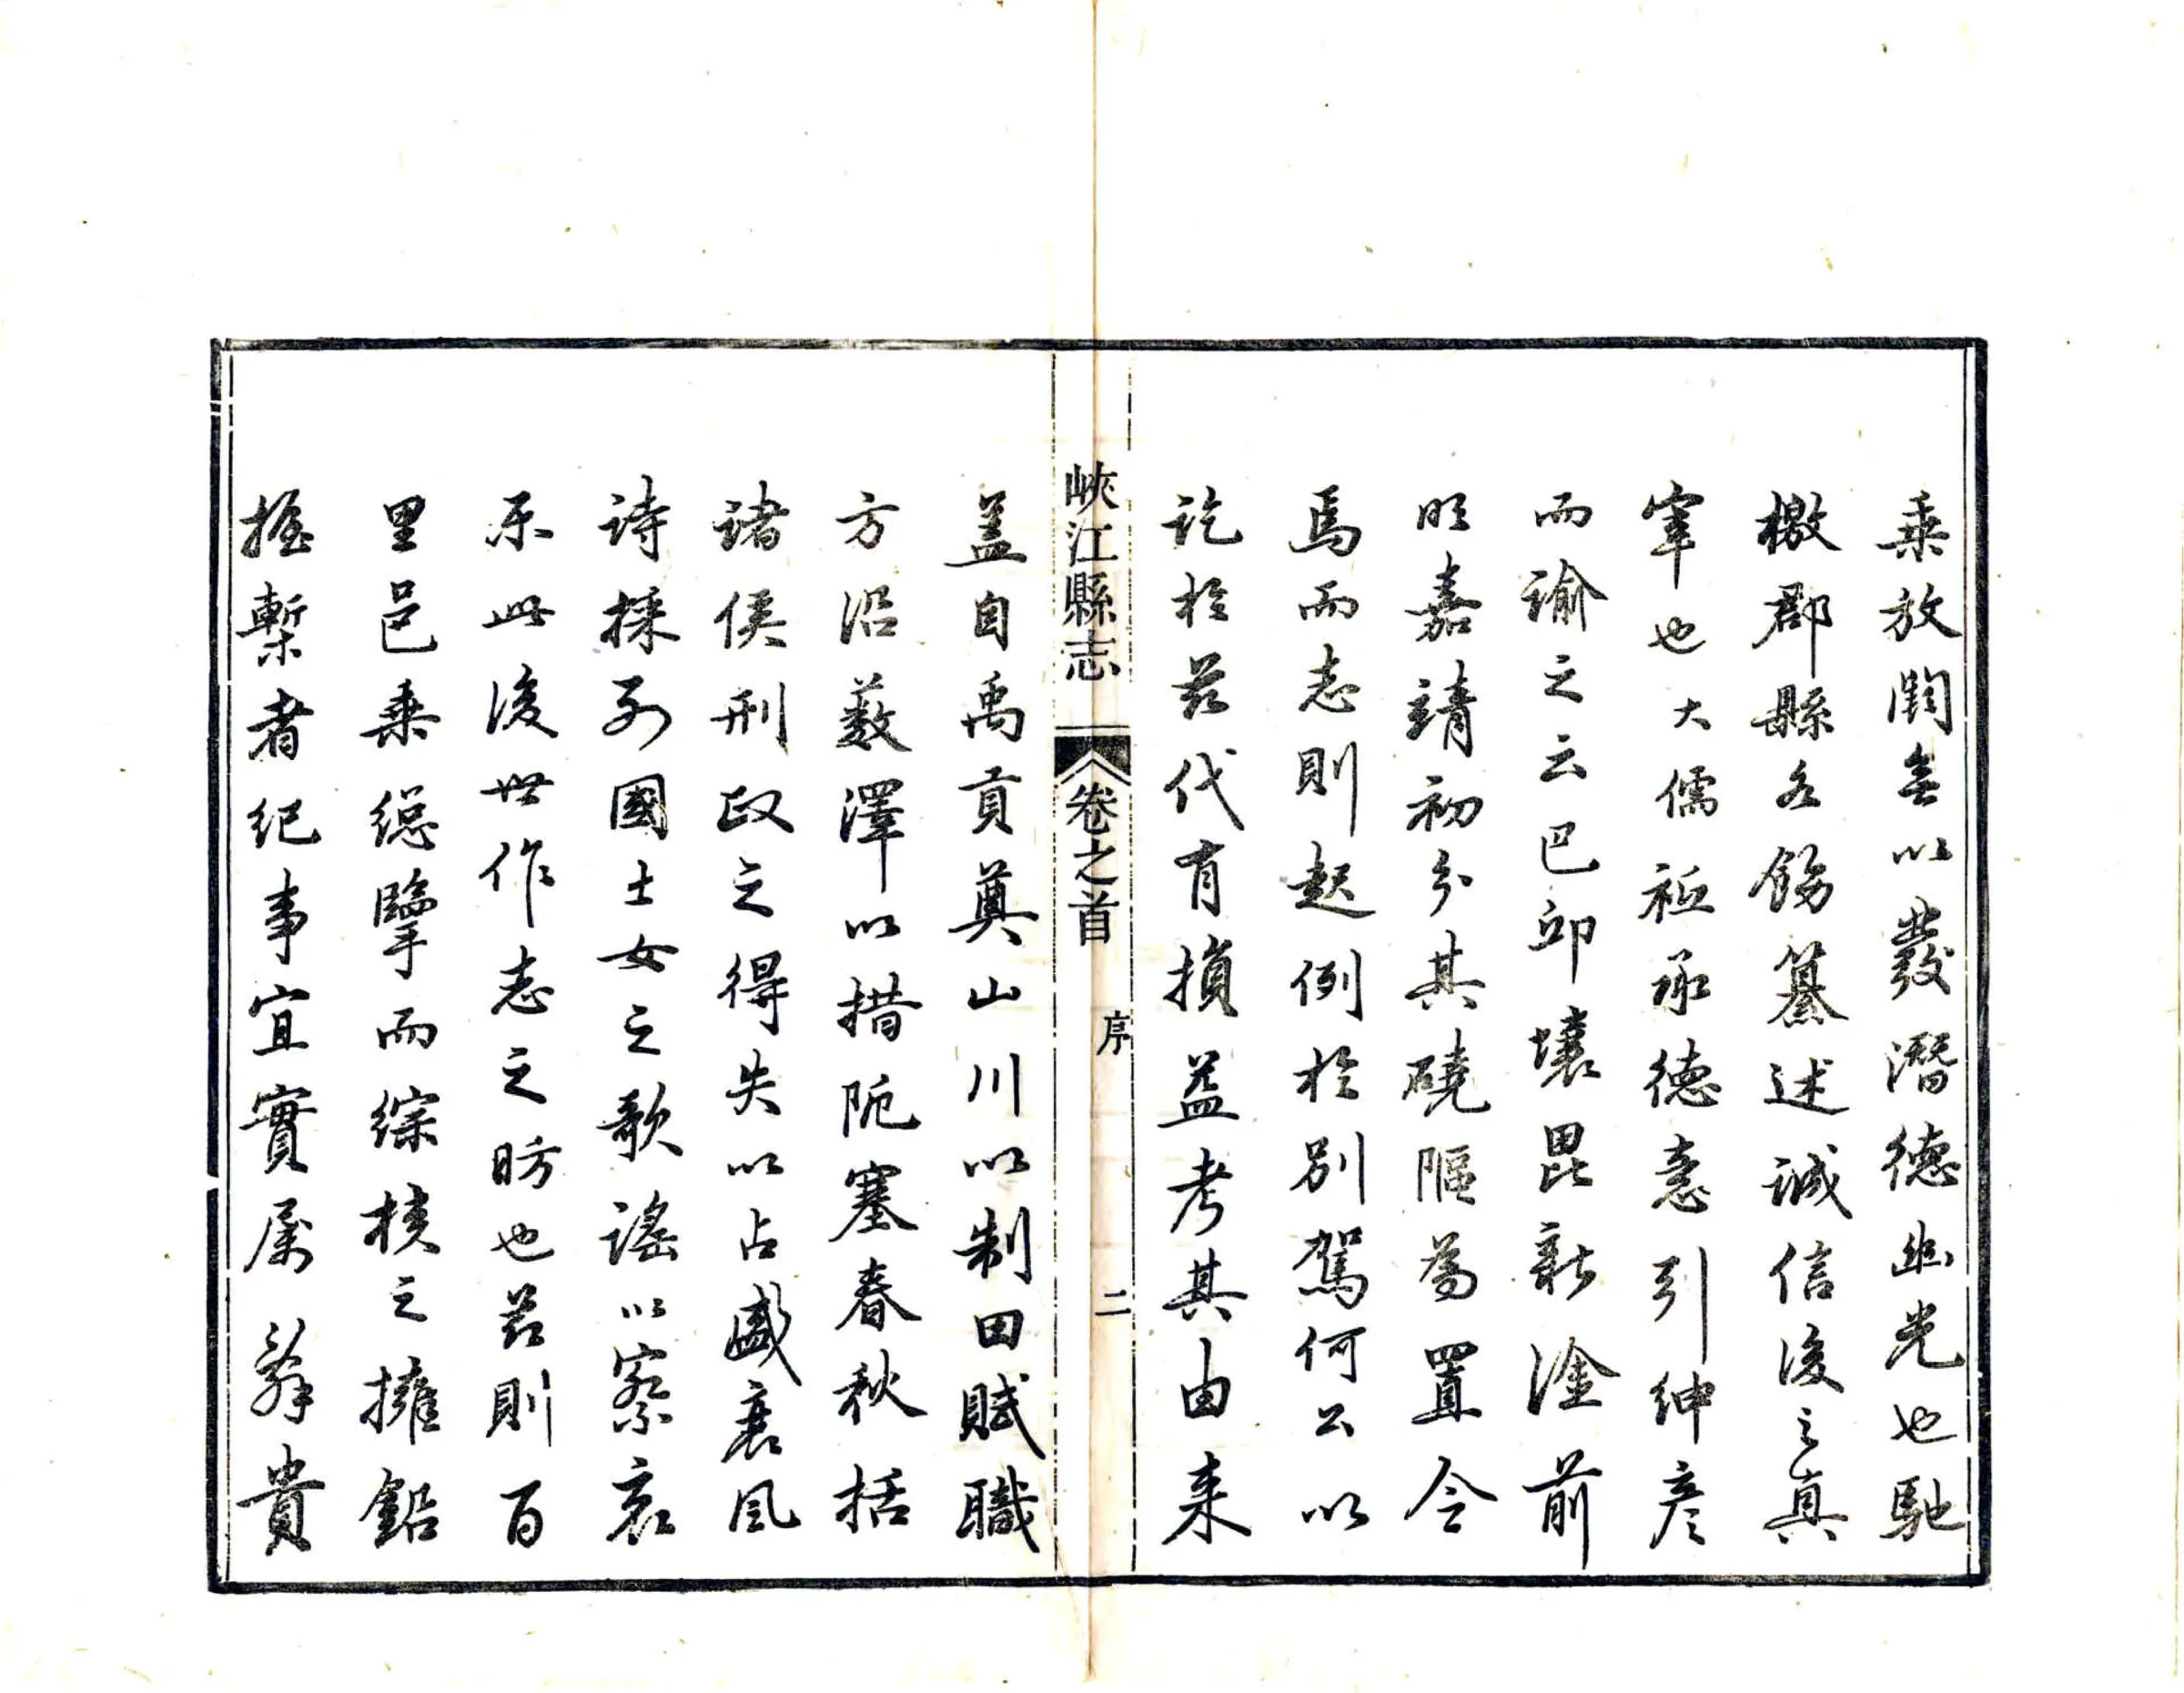 乗放闕無以發潛德幽光也馳
檄郡縣各飭纂述誠信後之真
宰也大儒祗承德意引紳彥
而諭之云巴邱壤毘新淦前
明嘉靖初分其磽隔為置令
焉而志則起例於別駕何公以
訖於茲代有損益考其由来
峽江縣志 卷之首 序 二
盖自禹貢奠山川以制田賦職
方沿薮澤以措阨塞春秋括
諸侯刑政之得失以占盛衰風
詩採列國士女之歌謠以察哀
樂此後世作志之昉也若則百
里邑乗總擥而綜核之擁鉛
握槧者紀事宜實属辭貴